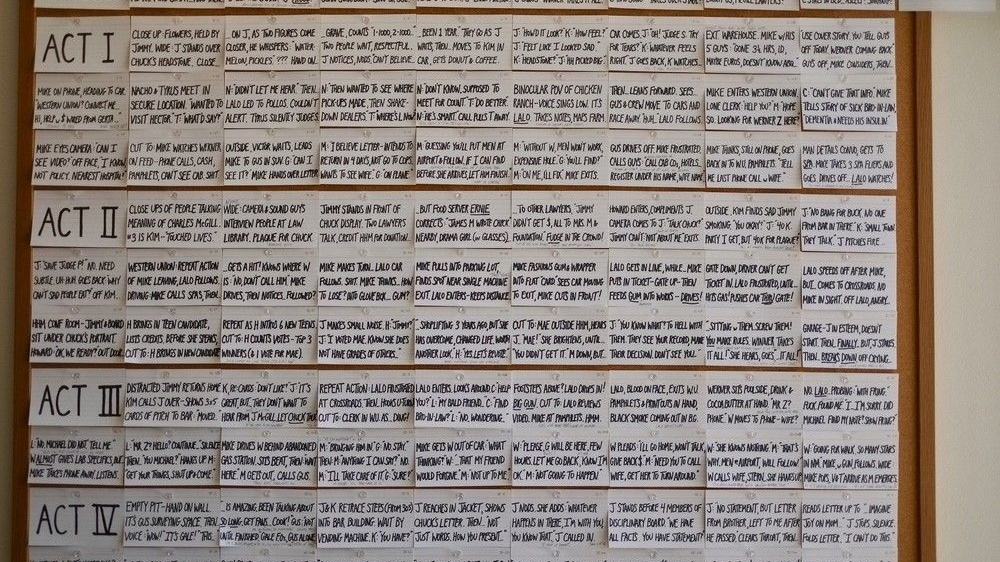 ACT I
CLOSE UP - FLOWERS, HELD BY
JIMMY. WIDE: J STANDS OVER
CHUCK'S HEADSTONE. CLOSE
...ON J, AS TWO FIGURES COME
CLOSER, HE WHISPERS: WATER-
MELON, PICKLES" ??? HAND ON..
GRAVE, COUNTS "1-1000, 2-1000.."
TWO PEOPLE WANT, RESPECTFUL.
J NOTICES, NODS, CAN'T BELIEVE..
..BEEN 1 YEAR." THEY GO AS J
WAITS, THEN.. MOVES TO KIM IN
CAR, GETS DONUT & COFFEE.
J: "HOW'D IT LOOK?" K: "HOW FEEL?"
J: "FELT LIKE I LOOKED SAD."
K: "HEADSTONE?" J: "HH PICKED BIG."
CAR COMES. J: "OH! JUDGE S. TRY
FOR TEARS?" K: "WHATEVER FEELS
RIGHT." J GOES BACK, K WATCHES..
EXT WAREHOUSE. MIKE W/HIS
5 GUYS: "GONE 34 HRS, ID,
MAYBE EUROS, DOESN'T KNOW ABQ.."
USE COVER STORY.. YOU TELL GUYS
OFF TODAY WERNER COMING BACK."
GUYS OFF, MIKE CONSIDERS, THEN..
MIKE ON PHONE, HEADING TO CAR:
"WESTERN UNION? CONNECT ME..
HI, HELP w/ $ WIRED FROM GERTA..."
NACHO & TYRUS MEET IN
SECURE LOCATION. "WANTED TO
VISIT HECTOR." T: "WHAT'D SAY?"
N: "DIDN'T LET ME HEAR." THEN..
LALO LED TO POLLOS. COULDN'T
ALERT." TYRUS SILENTLY JUDGES.
N: "THEN WANTED TO SEE WHERE
PICKUPS MADE, THEN SHAKE-
DOWN DEALERS." T: "WHERE'S L NOW?"
N: "DON'T KNOW. SUPPOSED TO
MEET FOR COUNT." T: "DO BETTER."
N: "HE'S SMART. CALL PULLS T AWAY.
BINOCULAR POV OF CHICKEN
RANCH - VOICE SINGS LOW. IT'S
LALO. TAKES NOTES, MAPS FARM.
THEN.. LEANS FORWARD. SEES..
GUS & CREW MOVE TO CARS AND
RACE AWAY. "HUH.." LALO FOLLOWS.
MIKE ENTERS WESTERN UNION,
LONE CLERK: "HELP YOU?" M: "HOPE
SO. LOOKING FOR WERNER Z HERE?"
C: "CAN'T GIVE THAT INFO." MIKE
TELLS STORY OF SICK BRO-IN-LAW.
"DEMENTIA & NEEDS HIS INSULIN."
MIKE EYES CAMERA: "CAN I
SEE VIDEO?" OFF FACE, "I KNOW
NOT POLICY. NEAREST HOSPITAL?"
CUT TO: MIKE WATCHES WERNER
ON FEED - PHONE CALLS, CASH,
PAMPHLETS, CAN'T SEE CAB. SHIT.
OUTSIDE, VICTOR WAITS, LEADS
MIKE TO GUS IN SUV. G: "CAN I
SEE IT?" MIKE HANDS OVER LETTER
M: "I BELIEVE LETTER - INTENDS TO
RETURN IN 4 DAYS, NOT GO TO COPS.
WANTS TO SEE WIFE." G: "ON PLANE"
M: "GUESSING YOU'LL PUT MEN AT
AIRPORT & FOLLOW. IF I CAN FIND
BEFORE SHE ARRIVES, LET HIM FINISH."
M: "WITHOUT W, MEN WON'T WORK,
EXPENSIVE HOLE. G: "YOU'LL FIND?"
M: "ON ME, I'LL FIX." MIKE EXITS.
GUS DRIVES OFF. MIKE FRUSTRATED,
CALLS GUYS: "CALL CAB CO., HOTELS..
REGISTER UNDER HIS NAME, WIFE NAME
MIKE THINKS, STILL ON PHONE, GOES
BACK IN TO WU. PAMPHLETS. "TELL
ME LAST PHONE CALL w/ WIFE."
MAN DETAILS CONVO, GETS TO
SPA. MIKE TAKES 3 SPA FLIERS AND
GOES, DRIVES OFF... LALO WATCHES!
ACT II
CLOSE UPS OF PEOPLE TALKING
MEANING OF CHARLES McGILL.
#3 IS KIM - "TOUCHED LIVES."
WIDE: CAMERA & SOUND GUYS
INTERVIEW PEOPLE AT LAW
LIBRARY, PLAQUE FOR CHUCK.
JIMMY STANDS IN FRONT OF
CHUCK DISPLAY. TWO LAWYERS
TALK, CREDIT HHM FOR DONATION..
..BUT FOOD SERVER ERNIE
CORRECTS: "JAMES M WROTE CHECK"
NEARBY DRAMA GIRL (w/ GLASSES)..
..TO OTHER LAWYERS: "JIMMY
DIDN'T GET $, ALL TO MRS. M &
FOUNDATION." FUDGE IN THE CROWD!
HOWARD ENTERS, COMPLIMENTS J.
CAMERA COMES TO J: "TALK CHUCK?"
JIMMY: "CAN'T - NOT ABOUT ME." EXITS.
OUTSIDE, KIM FINDS SAD JIMMY
SMOKING: "YOU OKAY?" J: "40 K
PARTY I GET, BUT 40K FOR PLAQUE?"
J: "NO BANG FOR BUCK, NO ONE
FROM BAR IN THERE." K: "SMALL TOWN
THEY TALK." J PITCHES FIRE....
J: "SAVE JUDGE P?" NO. NEED
SUBTLE. UH HUH. GOES BACK: "WHY
CAN'T SAD PEOPLE EAT?" OFF KIM..
WESTERN UNION: REPEAT ACTION
OF MIKE LEAVING, LALO FOLLOWS.
DRIVING - MIKE CALLS SPAS, THEN..
..GETS A HIT! KNOWS WHERE W
IS: "NO, DON'T CALL HIM." MIKE
DRIVES, THEN NOTICES.. FOLLOWED?
MIKE MAKES TURN... LALO CAR
FOLLOWS. SHIT. MIKE THINKS... HOW
TO LOSE? INTO GLOVE BOX... GUM?
MIKE PULLS INTO PARKING LOT,
FINDS SPOT NEAR SINGLE MACHINE
EXIT. LALO ENTERS - KEEPS DISTANCE.
MIKE FASHIONS GUM & WRAPPER
INTO FLAT CARD. SEES CAR MOVING
TO EXIT, MIKE CUTS IN FRONT!
LALO GETS IN LINE, WHILE.. MIKE
PUB IN TICKET - GATE UP - THEN
FEEDS GUM INTO WORKS - DRIVES!
GATE DOWN. DRIVER CAN'T GET
TICKET IN. LALO FRUSTRATED, UNTIL..
HITS GAS! PUSHES CAR THRU GATE!
LALO SPEEDS OFF AFTER MIKE,
BUT... COMES TO CROSSROADS. NO
MIKE IN SIGHT. OFF LALO, ANGRY...
HHM CONF ROOM - JIMMY & BOARD
SIT UNDER CHUCK'S PORTRAIT.
HOWARD: "OK, WE READY?" OUT DOOR..
H BRINGS IN TEEN CANDIDATE,
LISTS CREDITS. BEFORE SHE SPEAKS,
CUT TO: H BRINGS IN NEW CANDIDATE
REPEAT AS H INTROS 6 NEW TEENS.
CUT TO: H COUNTS VOTES - TOP 3
WINNERS (& 1 VOTE FOR MAE).
J MAKES SMALL NOISE. H: "JIMMY?"
J: "I VOTED MAE. KNOW SHE DOES
NOT HAVE GRADES OF OTHERS.."
SHOPLIFTING 3 YEARS AGO, BUT SHE
HAS OVERCOME, CHANGED LIFE. WORTH
ANOTHER LOOK." H: "YES, LET'S REVOTE"
CUT TO: MAE OUTSIDE HHM, HEARS
J: "MAE!" SHE BRIGHTENS, UNTIL...
"YOU DIDN'T GET IT." M DOWN, BUT..
J: "YOU KNOW WHAT? TO HELL WITH
THEM. THEY SEE YOUR RECORD, MAKE
THEIR DECISION, DON'T SEE YOU."
..SITTING w/ THEM. SCREW THEM!
YOU MAKE RULES. WINNER TAKES
IT ALL!" SHE HEARS, GOES. "IT ALL!"
GARAGE - J IN ESTEEM, DOESN'T
START. THEN, FINALLY, BUT J STARES
THEN.. BREAKS DOWN. OFF CRYING...
ACT III
DISTRACTED JIMMY RETURNS HOME
KIM CALLS J OVER - SHOWS 3x5
CARDS OF PITCH TO BAR: "MOVED.."
K, RE: CARDS: "DON'T LIKE?" J: "IT'S
GREAT, BUT.. THEY DON'T WANT TO
HEAR FROM J McGILL. LET CHUCK TALK
REPEAT ACTION: LALO FRUSTRATED
AT CROSSROADS. THEN, HOOKS U-TURN
CUT TO: CLERK IN WU. AS.. DING!
LALO ENTERS, LOOKS AROUND. C: "HELP
YOU?" L: "MY BALD FRIEND.." C: "FIND
BRO-IN-LAW?" L: "NO.. WONDERING.."
FOOTSTEPS ABOVE! LALO DRIVES IN!
BIG GUN. CUT TO: LALO REVIEWS
VIDEO. MIKE AT PAMPHLETS. HMM.
LALO, BLOOD ON FACE, EXITS WU.
PAMPHLETS & PRINTOUT IN HAND,
BLACK SMOKE COMING OUT IN BG.
WERNER SITS POOLSIDE, DRINK &
COCOA BUTTER AT HAND. "MR. Z?
PHONE." W MOVES TO PHONE - WIFE?
NO, LALO. PROBING - "WITH FRING..
FUCK, FOUND ME." "I...I'M SORRY. DID
MICHAEL FIND MY NOTE? SHOW FRING?
L: "NO, MICHAEL DID NOT TELL ME."
W ALMOST GIVES LAB SPECIFICS, BUT
MIKE TAKES PHONE AWAY, LISTENS!
L: "MR. Z? HELLO?" CONTINUE.. SILENCE
THEN, "YOU, MICHAEL?" HANGS UP. M: "
GET YOUR THINGS, SHUT UP & COME."
MIKE DRIVES W BEHIND ABANDONED
GAS STATION. SITS BEAT, THEN: "WAIT
HERE." M GETS OUT, CALLS GUS.
M: "BRINGING HIM IN." G: "NO. STAY."
THEN.. M: "ANYTHING I CAN SAY?" "NO."
M: "I'LL TAKE CARE OF IT." G: "SURE?"
MIKE GETS W OUT OF CAR - "WHAT
THINKING?" W: "..THAT MY FRIEND
WOULD FORGIVE." M: "NOT UP TO ME."
W: "PLEASE, G WILL BE HERE, FEW
HOURS. LET ME GO BACK, KNOW I'M
OK." M: "NOT GONNA HAPPEN."
W PLEADS: "I'LL GO HOME, WON'T TALK,
GIVE BACK $." M: "NEED YOU TO CALL
WIFE, GET HER TO TURN AROUND."
W: "SHE KNOWS NOTHING." M: "THAT'S
WHY. MEN @ AIRPORT, WILL FOLLOW."
W CALLS WIFE, STERN, SHE HANGS UP
W: "GOING FOR WALK, SO MANY STARS
IN NM." MIKE w/ GUN FOLLOWS. WIDE:
MIKE POPS, VICTOR ARRIVE AS M EMERGES.
ACT IV
EMPTY PIT - HAND ON WALL.
IT'S GUS SURVEYING SPACE. THEN
VOICE: "WOW!" IT'S GALE! "THIS..
..IS AMAZING, BEEN TALKING ABOUT
SO LONG. GET FANS.. COOK!" GUS: "NOT
UNTIL FINISHED." GALE EXITS, GUS ALONE
J & K RETRACE STEPS (FROM 303)
INTO BAR BUILDING. WAIT BY
VENDING MACHINE. K: "YOU HAVE?"
J REACHES IN JACKET, SHOWS
CHUCK'S LETTER. THEN.. "NOT
JUST WORDS, HOW YOU PRESENT.."
J NODS. SHE ADDS: "WHATEVER
HAPPENS IN THERE, I'M WITH YOU.
YOU KNOW THAT." J CALLED IN.
J STANDS BEFORE 4 MEMBERS OF
DISCIPLINARY BOARD: "WE HAVE
ALL FACTS. YOU HAVE STATEMENT?"
J: "NO STATEMENT, BUT LETTER
FROM BROTHER, LEFT TO ME AFTER
HE PASSED. CLEARS THROAT, THEN..
READS LETTER UP TO "..IMAGINE
JOY ON MOM.." J STOPS. SILENCE.
FOLDS LETTER. "I CAN'T DO THIS."